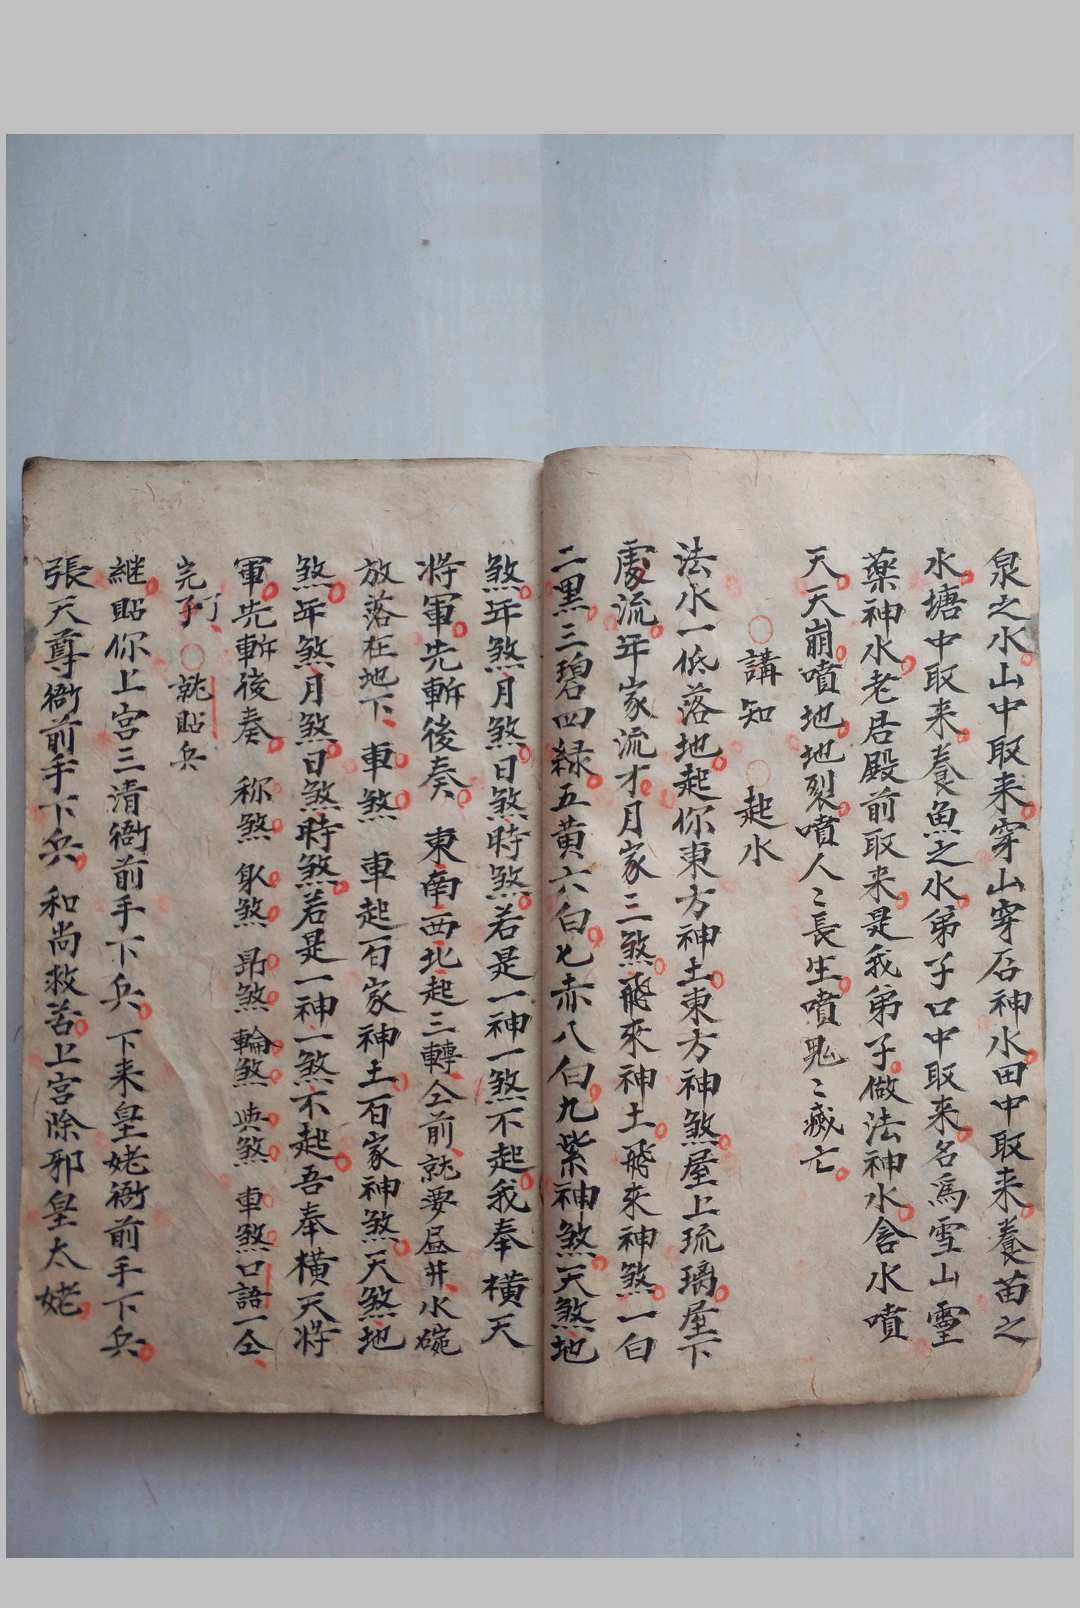 泉之水山中取来穿山穿石神水田中取来養苗之
水塘中取来養魚之水弟子口中取来名為雪山靈
藥神水老君殿前取来是我弟子做法神水含水噴
天天崩噴地地裂噴人〻長生噴鬼〻藏亡
〇講知 〇起水
法水一低落地起你東方神土東方神煞屋上琉璃屋下
處流年家流才月家三煞飛來神土飛來神煞一白
二黑三碧四緑五黄六白七赤八白九紫神煞天煞地
煞年煞月煞日煞時煞若是一神一煞不起我奉橫天
将軍先斬後奏 東南西北起三轉仝前就要昼井水碗
放落在地下 車煞 車起百家神土百家神煞天煞地
煞年煞月煞日煞時煞若是一神一煞不起吾奉橫天将
軍先斬後奏 称煞 煞 昂煞 輪煞 煞 車煞口語一仝
完了 〇就貼兵
継貼你上宫三清衙前手下兵下来皇姥衙前手下兵
張天尊衙前手下兵和尚救苦上宫除邪皇太姥